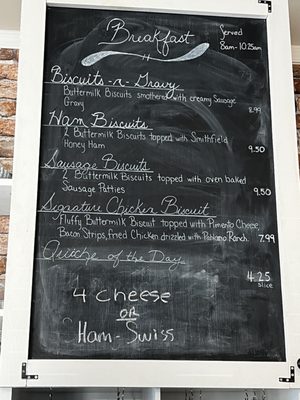 Breakfast
Served
8am-10:25am
Biscuits-n-Gravy
Buttermilk Biscuits smothered with creamy Sausage
Gravy
8.99
Ham Biscuits
2 Buttermilk Biscuits topped with Smithfield
Honey Ham
9.50
Sausage Biscuits
2 Buttermilk Biscuits topped with oven baked
Sausage Patties
9.50
Signature Chicken Biscuit
Fluffy Buttermilk Biscuit topped with Pimento Cheese,
Bacon Strips, Fried Chicken drizzled with Poblano Ranch. 7.99
Quiche of the Day
4.25
slice
4 Cheese
OR
Ham-Swiss